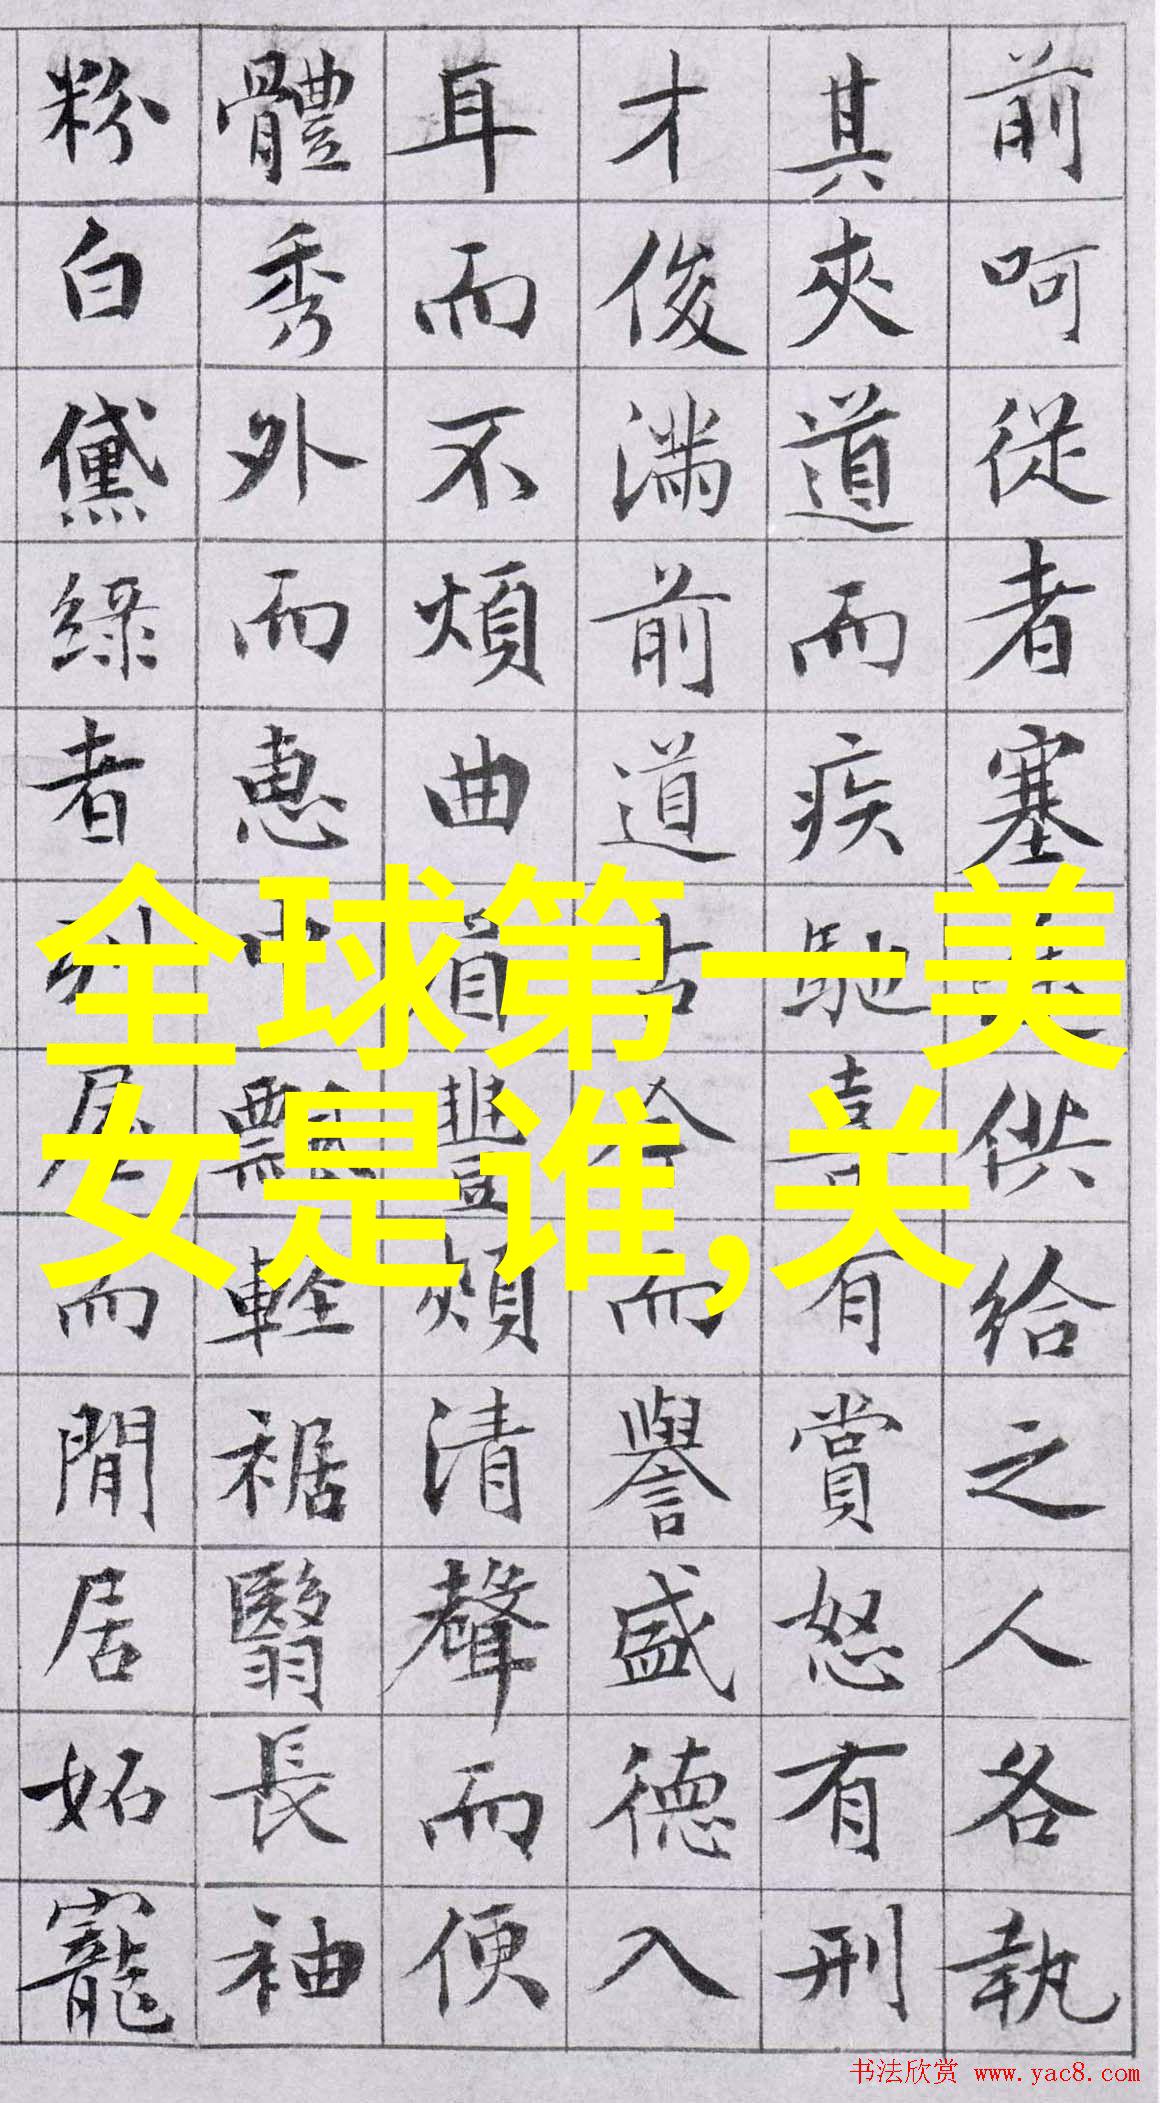 前呵從者塞供給之人各執
其夾道而疾馳喜有賞怒有刑
才俊滿前道古今而譽盛德入
耳而不煩曲眉豐頰清聲而便
體秀外而惠中飄輕裾翳長袖
粉白黛綠者列屋而閒居妬寵
全球第一美
女是谁,关
书法欣赏 www.yac8.com